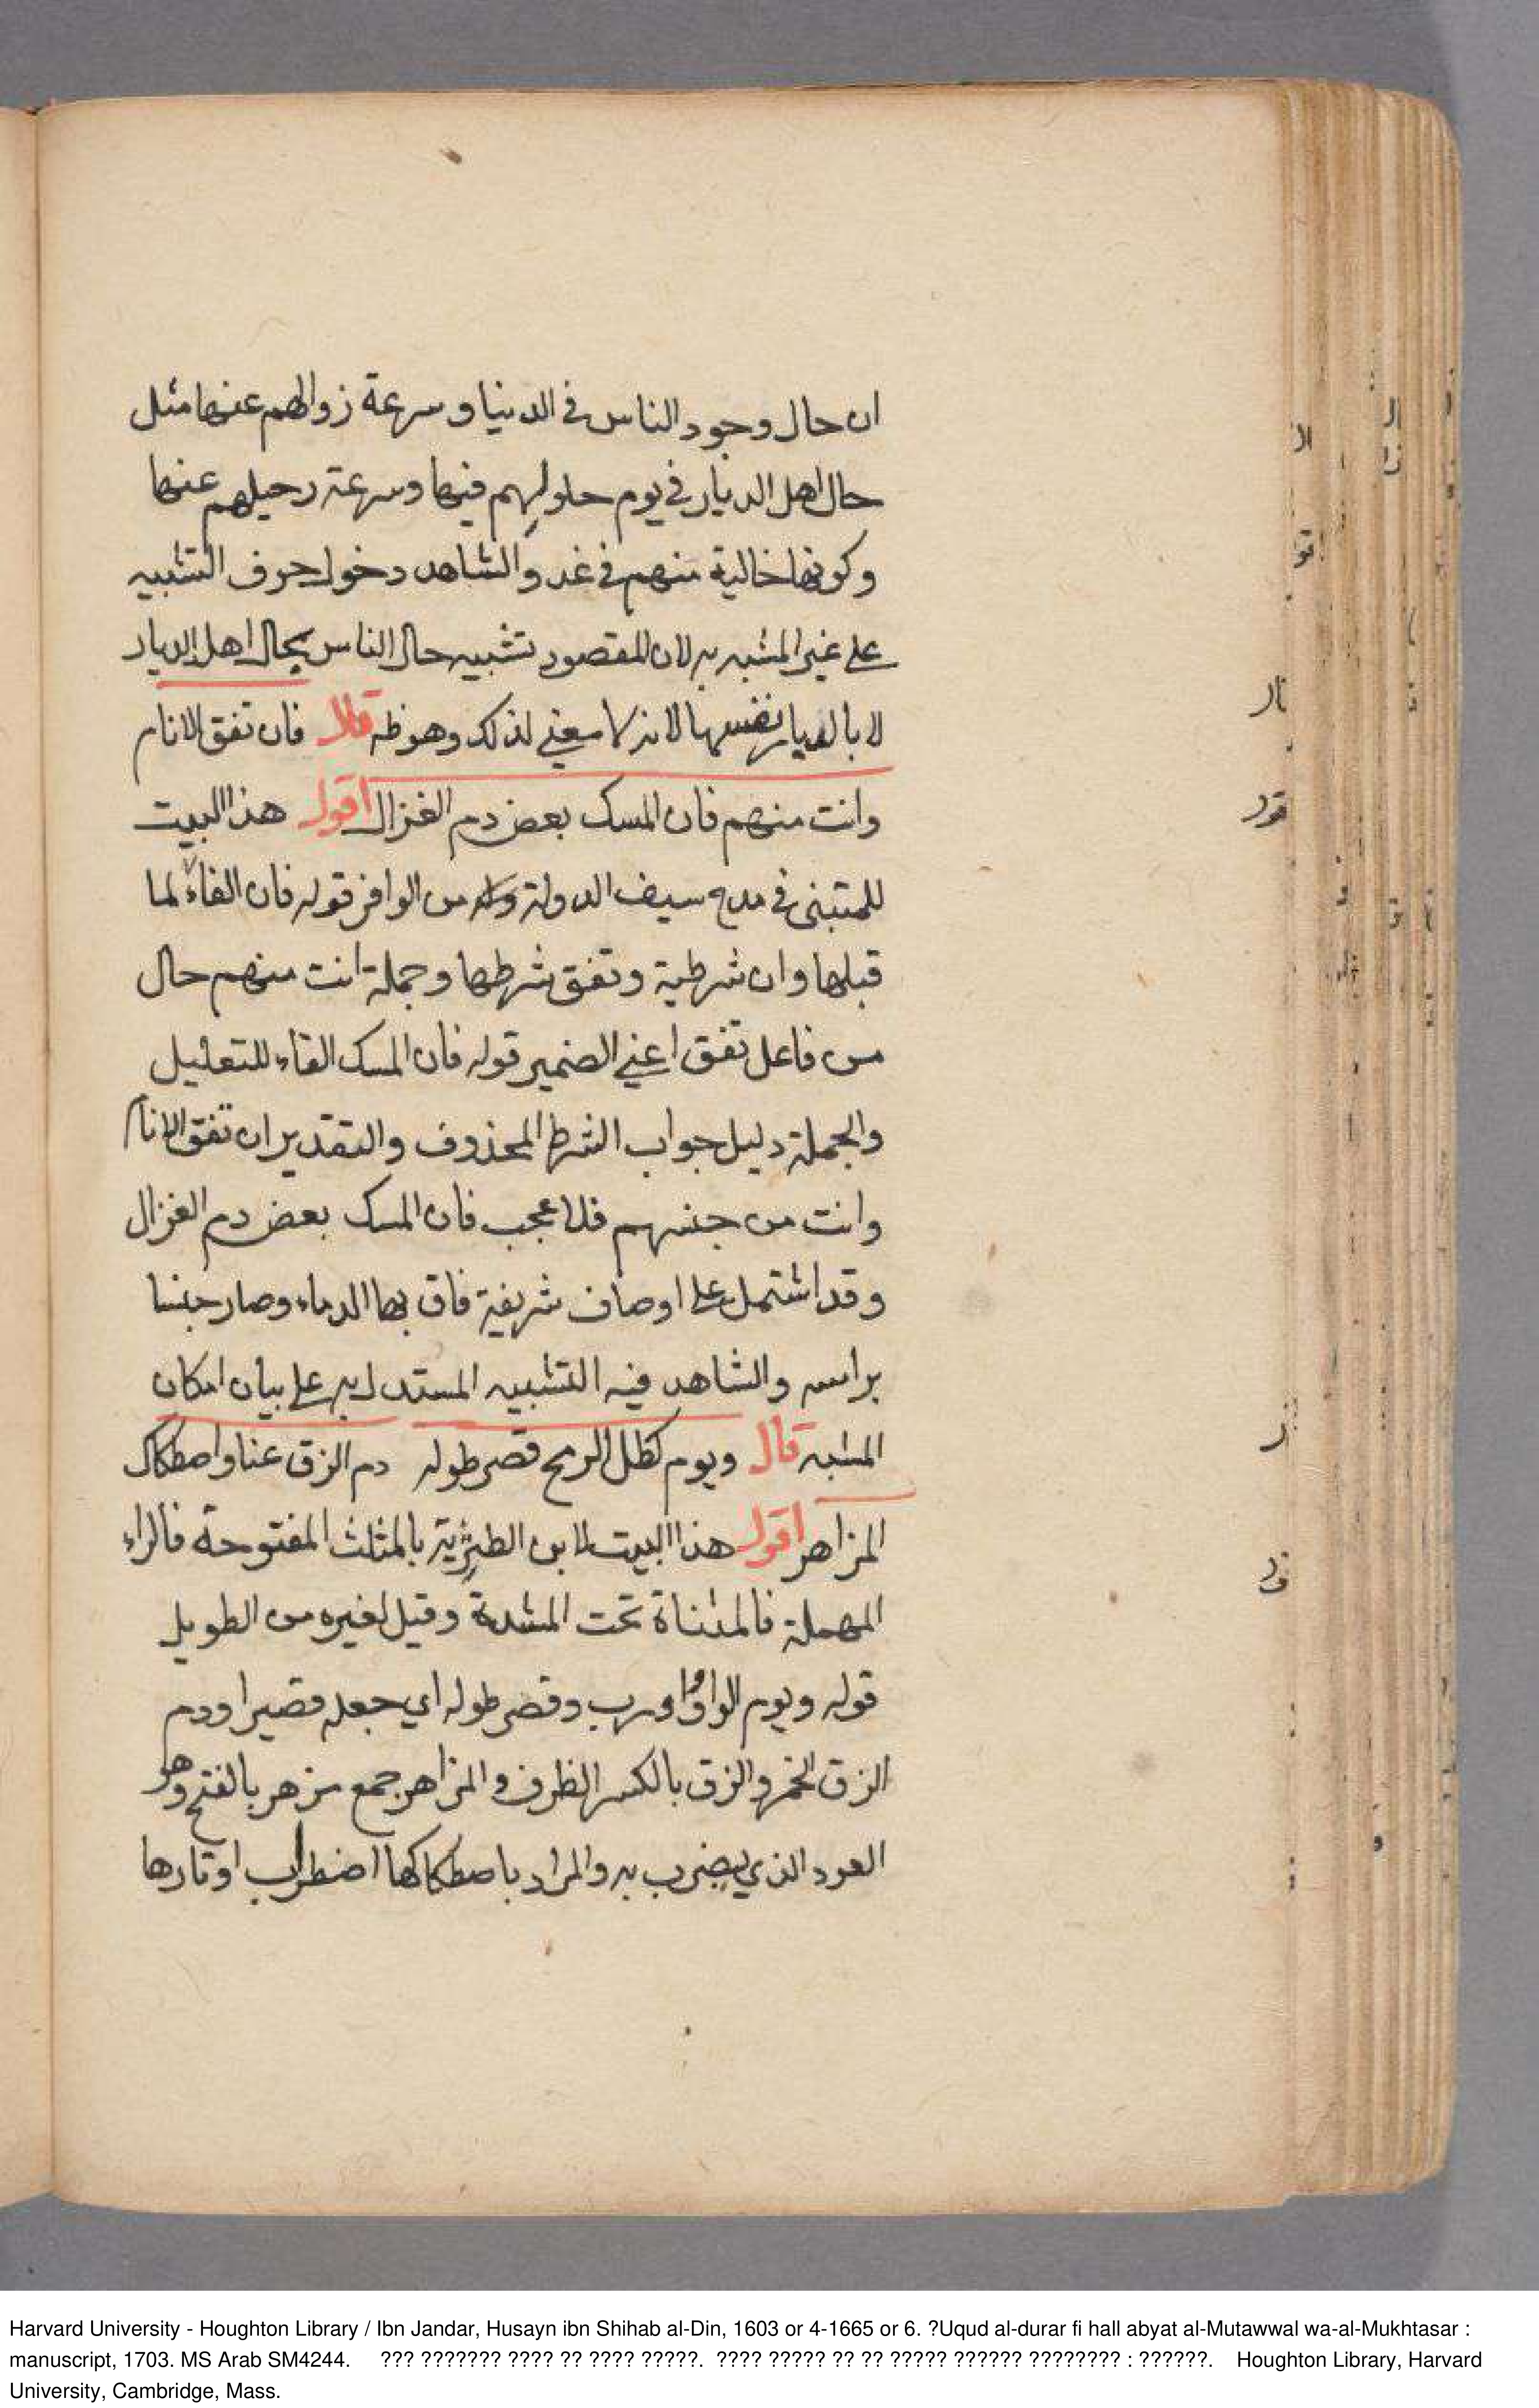 ان حال وجود الناس في الدنيا وسرعة زوالهم عنها مثل
حال اهل الديار في يوم حلولهم فيها وسرعة رحيلهم عنها
وكونها خالية منهم في غد والشاهد دخول حرف التشبيه
على غير المشبه به لان المقصود تشبيه حال الناس بحال اهل الديار
لا بالديار نفسها لانه لا معنى لذلك وهو ظ قال فان تفق الانام
وانت منهم فان المسك بعض دم الغزال اقول هذا البيت
للمتنبي في مدح سيف الدولة من الوافر قوله فان الفاء لما
قبلها وان شرطية وتفق شرطها وجملة انت منهم حال
من فاعل تفق اعني الضمير قوله فان المسك الفاء للتعليل
والجملة دليل جواب الشرط المحذوف والتقدير ان تفق الانام
وانت من جنسهم فلا عجب فان المسك بعض دم الغزال
وقد اشتمل على اوصاف شريفة فاق بها الدماء وصار جنسا
براسه والشاهد فيه التشبيه المستدل به على بيان امكان
المشبه قال ويوم كظل الرمح قصر طوله دم الزق عنا واصطكاك
المزاهر اقول هذا البيت لابن الطثرية بالمثلث المفتوحة فالراء
المهملة فالمثناة تحت المشددة وقيل لغيره من الطويل
قوله ويوم الواو واو رب وقصر طوله اي جعله قصيرا ودم
الزق الخمر والزق بالكسر الظرف والمزاهر جمع مزهر بالفتح وهو
العود الذي يضرب به والمراد باصطكاكها اضطراب اوتارها
Harvard University - Houghton Library / Ibn Jandar, Husayn ibn Shihab al-Din, 1603 or 4-1665 or 6. ?Uqud al-durar fi hall abyat al-Mutawwal wa-al-Mukhtasar :
manuscript, 1703. MS Arab SM4244. ??? ??????? ???? ?? ???? ?????. ???? ????? ?? ?? ????? ?????? ???????? : ??????. Houghton Library, Harvard
University, Cambridge, Mass.